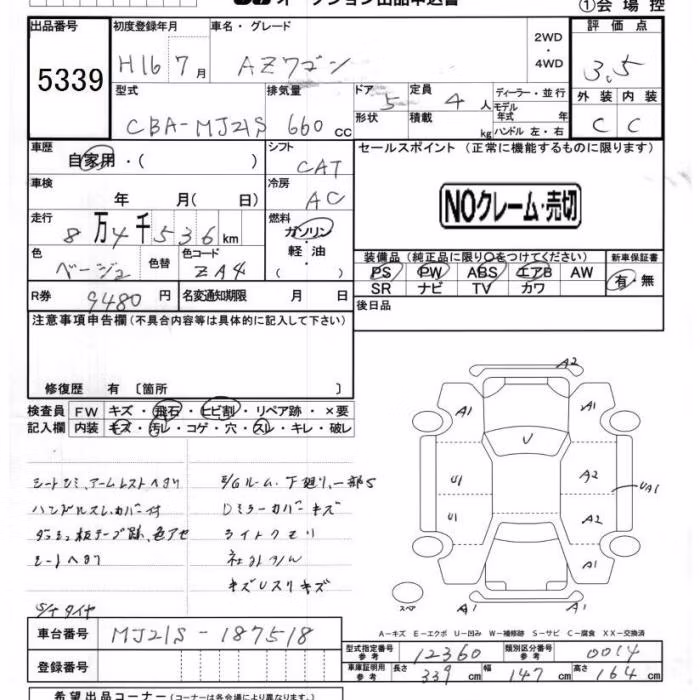 オークション出品申込書
①会場控
出品番号 初度登録年月 車名・グレード 2WD ・ 4WD 評価点
5339 H16 7月 AZワゴン 3.5
型式 排気量 ドア 5 定員 4人 ディーラー・並行 外装 内装
CBA-MJ21S 660cc 形状 積載 kg モデル年式 年 ハンドル 左・右 C C
車歴 自家用・( ) シフト CAT セールスポイント (正常に機能するものに限ります)
車検 年 月( 日) 冷房 AC
NOクレーム・売切
走行 8万4千536km 燃料 ガソリン・軽油・( )
色 ベージュ 色替 色コード ZA4
装備品 (純正品に限り○をつけてください) 新車保証書
PS PW ABS エアB AW 有・無
SR ナビ TV カワ
R券 9480円 名変通知期限 月 日 後日品
注意事項申告欄 (不具合内容等は具体的に記入して下さい)
修復歴 有 〔箇所 〕
検査員 FW キズ・飛石・ヒビ割・リペア跡・×要
記入欄 内装 キズ・汚レ・コゲ・穴・スレ・キレ・破レ
シートシミ、アームレストヘタリ
ハンドルスレ、カバー付
ダッシュ板テープ跡、色アセ
シートヘタリ
S/Fタイヤ
E/Gルーム・下廻り、一部S
Dミラーカバーキズ
ライトクモリ
キズUスリキズ
A2
A1 A1
V
U1 A2
UA1
U1 A2
A1
A1 A1
スペア
A−キズ E−エクボ U−凹み W−補修跡 S−サビ C−腐食 XX−交換済
車台番号 MJ21S-187518
型式指定番号 参考 12360 類別区分番号 参考 0014
登録番号
車庫証明用 参考 長さ 339cm 幅 147cm 高さ 164cm
希望出品コーナー (コーナーは各会場により異なります。)